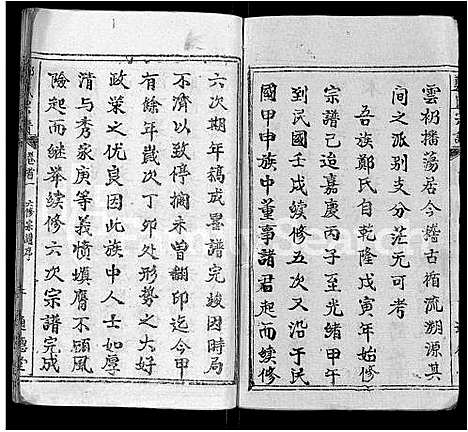 雲礽播蕩居今稽古循流溯源其
間之派别支分茫元可考
吾族鄭氏自乾隆戊寅年始修
宗譜己追嘉慶丙子至光緒甲午
到民國壬戌續修五次又沿于民
國甲申族中董事諸君起而續修
六次期年稿成畧譜完竣因時局
不濟以致停擱未曾翻印迄今甲
有餘年歲次丁卯处形势之大好
政策之优良因此族中人士如厚
清与秀家庚等義憤填膺不顾風
險起而継举续修六次宗譜完成
卷首一
六修宗譜序